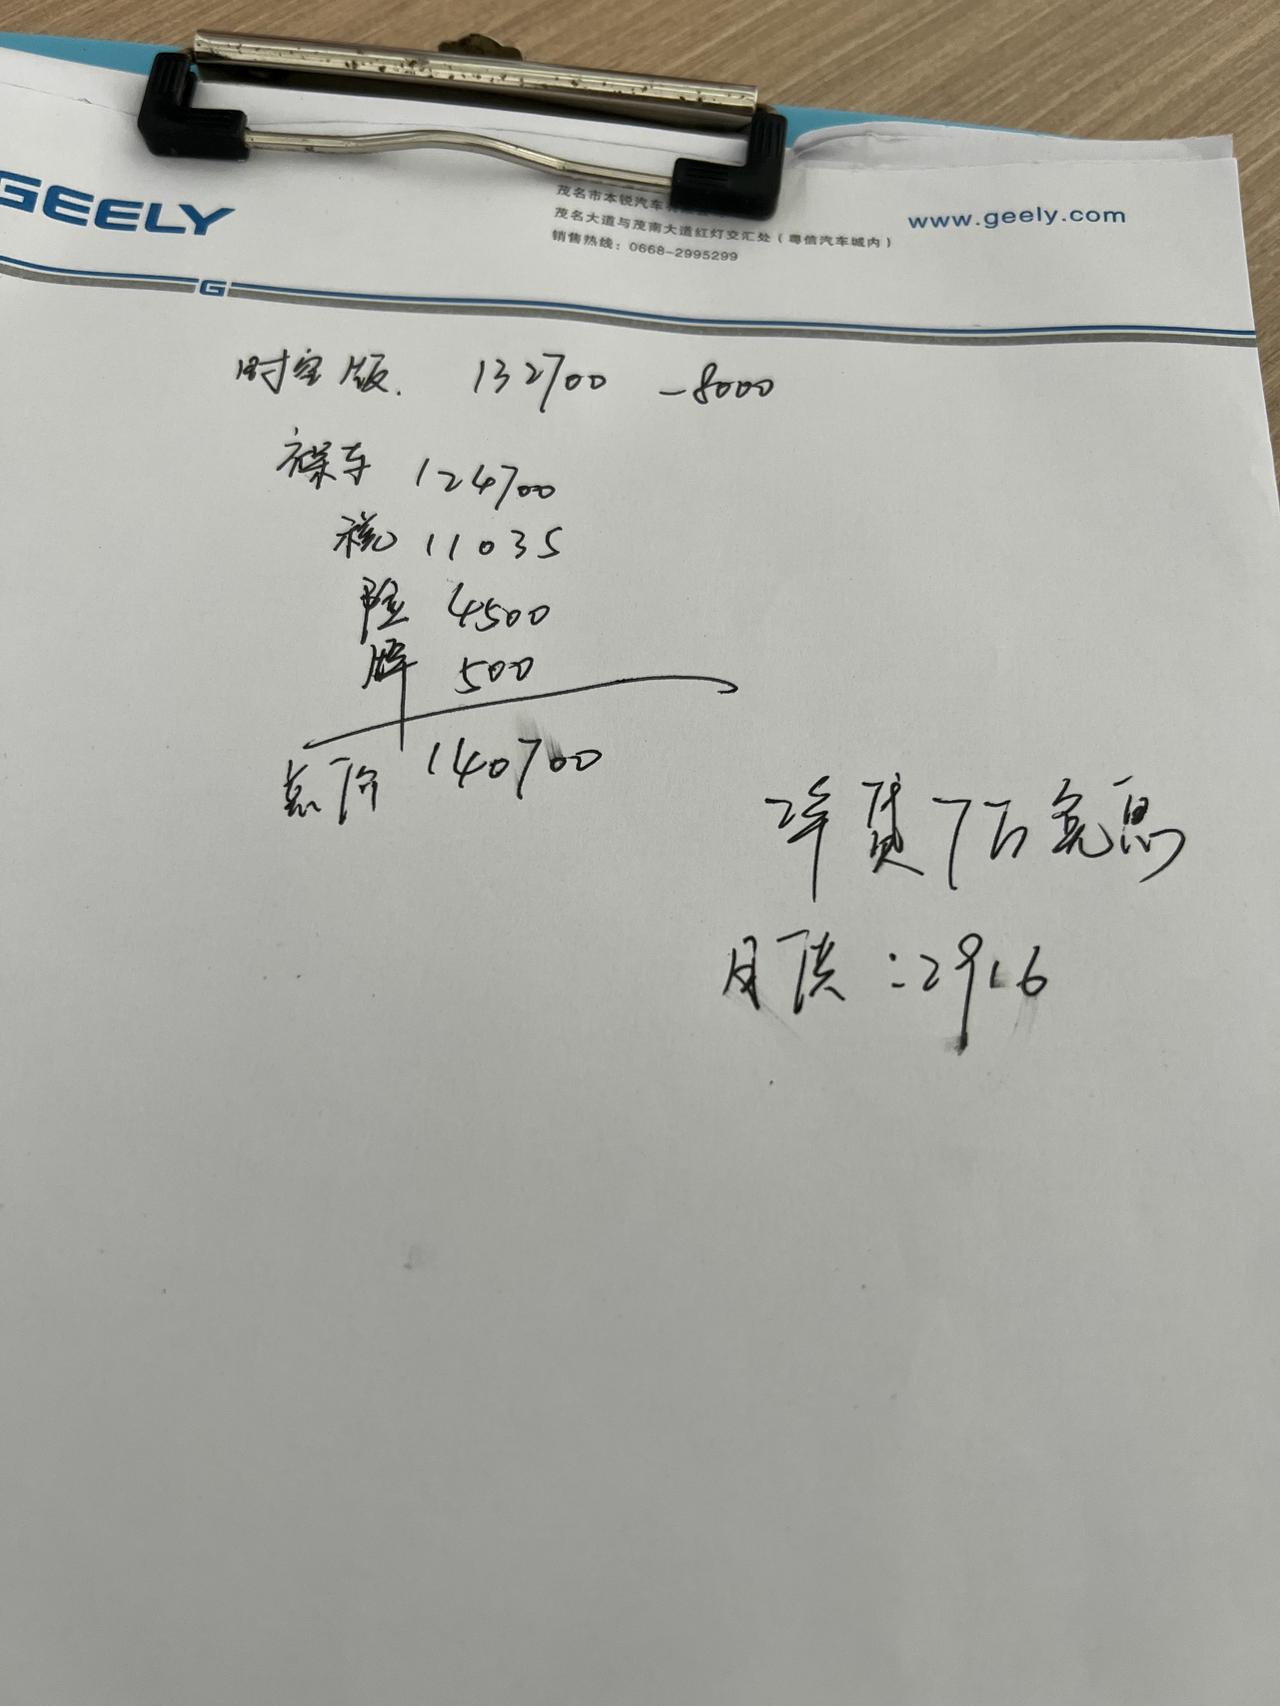 GEELY
茂名市本锐汽车有
茂名大道与茂南大道红灯交汇处（粤信汽车城内）
销售热线：0668-2995299
www.geely.com
G
时空版. 132700 -8000
裸车 124700
税 11035
险 4500
牌 500
总价 140700
2年贷7万免息
月供：2916